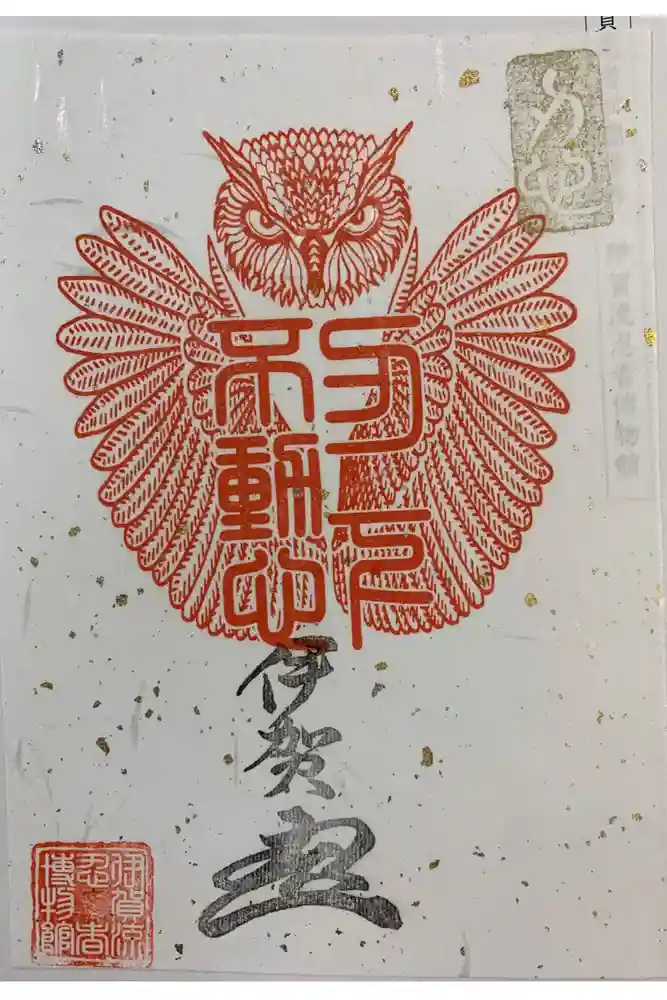 刃下
不動心
伊賀
伊賀流
忍者
博物館
伊賀流忍者博物館